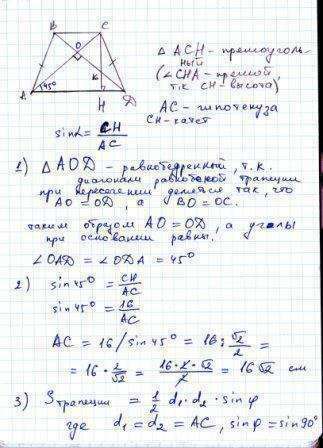 B C
O
K
A 45° H D
△ ACH - прямоуголь-
ный
(∠CHA - прямой
т.к CH - высота)
AC - гипотенуза
CH - катет
sin∠ = CH/AC
1) △ AOD - равнобедренный, т.к.
диагонали равнобокой трапеции
при пересечении делятся так, что
AO = OD, а BO = OC.
таким образом AO = OD, а углы
при основании равны.
∠OAD = ∠ODA = 45°
2) sin 45° = CH/AC
sin 45° = 16/AC
AC = 16/sin 45° = 16 : √2/2 =
= 16 · 2/√2 = 16·2·√2/2 = 16√2 см
3) S трапеции = 1/2 d₁ · d₂ · sin φ
где d₁ = d₂ = AC, sin φ = sin 90°